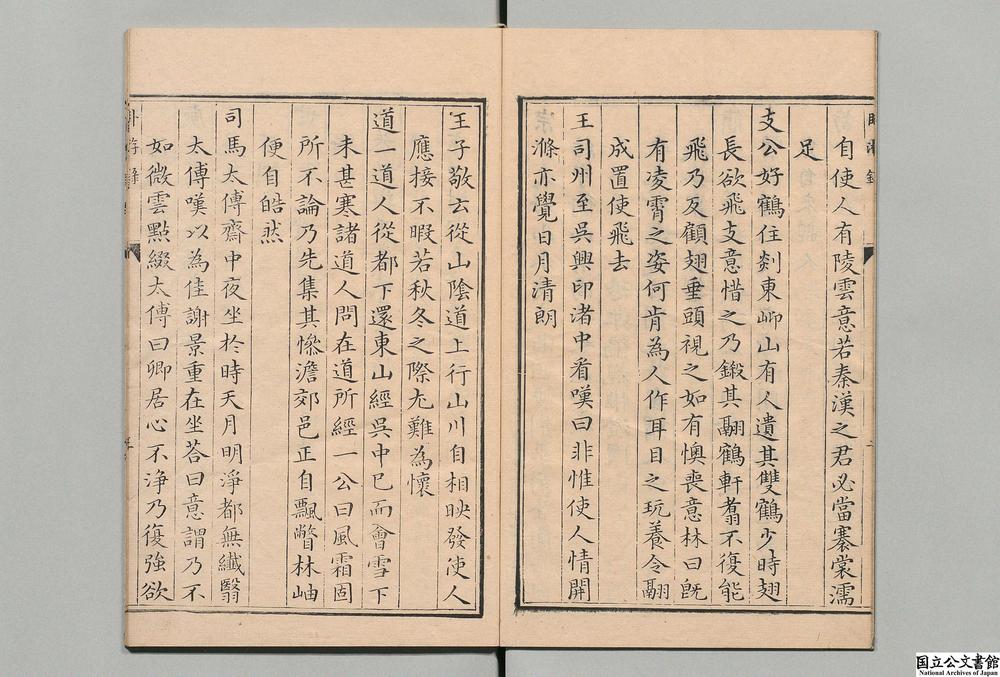 自使人有陵雲意若秦漢之君必當褰裳濡
足
支公好鶴住剡東岇山有人遺其雙鶴少時翅
長欲飛支意惜之乃鎩其翮鶴軒翥不復能
飛乃反顧翅垂頭視之如有懊喪意林曰旣
有凌霄之姿何肯為人作耳目之玩養令翮
成置使飛去
王司州至吳興印渚中看嘆曰非惟使人情開
滌亦覺日月清朗
王子敬云從山陰道上行山川自相映發使人
應接不暇若秋冬之際尤難為懷
道一道人從都下還東山經吳中已而會雪下
未甚寒諸道人問在道所經一公曰風霜固
所不論乃先集其慘澹郊邑正自飄瞥林岫
便自皓然
司馬太傅齋中夜坐於時天月明淨都無纖翳
太傅嘆以為佳謝景重在坐荅曰意謂乃不
如微雲點綴太傅曰卿居心不淨乃復強欲
国立公文書館
National Archives of Japan